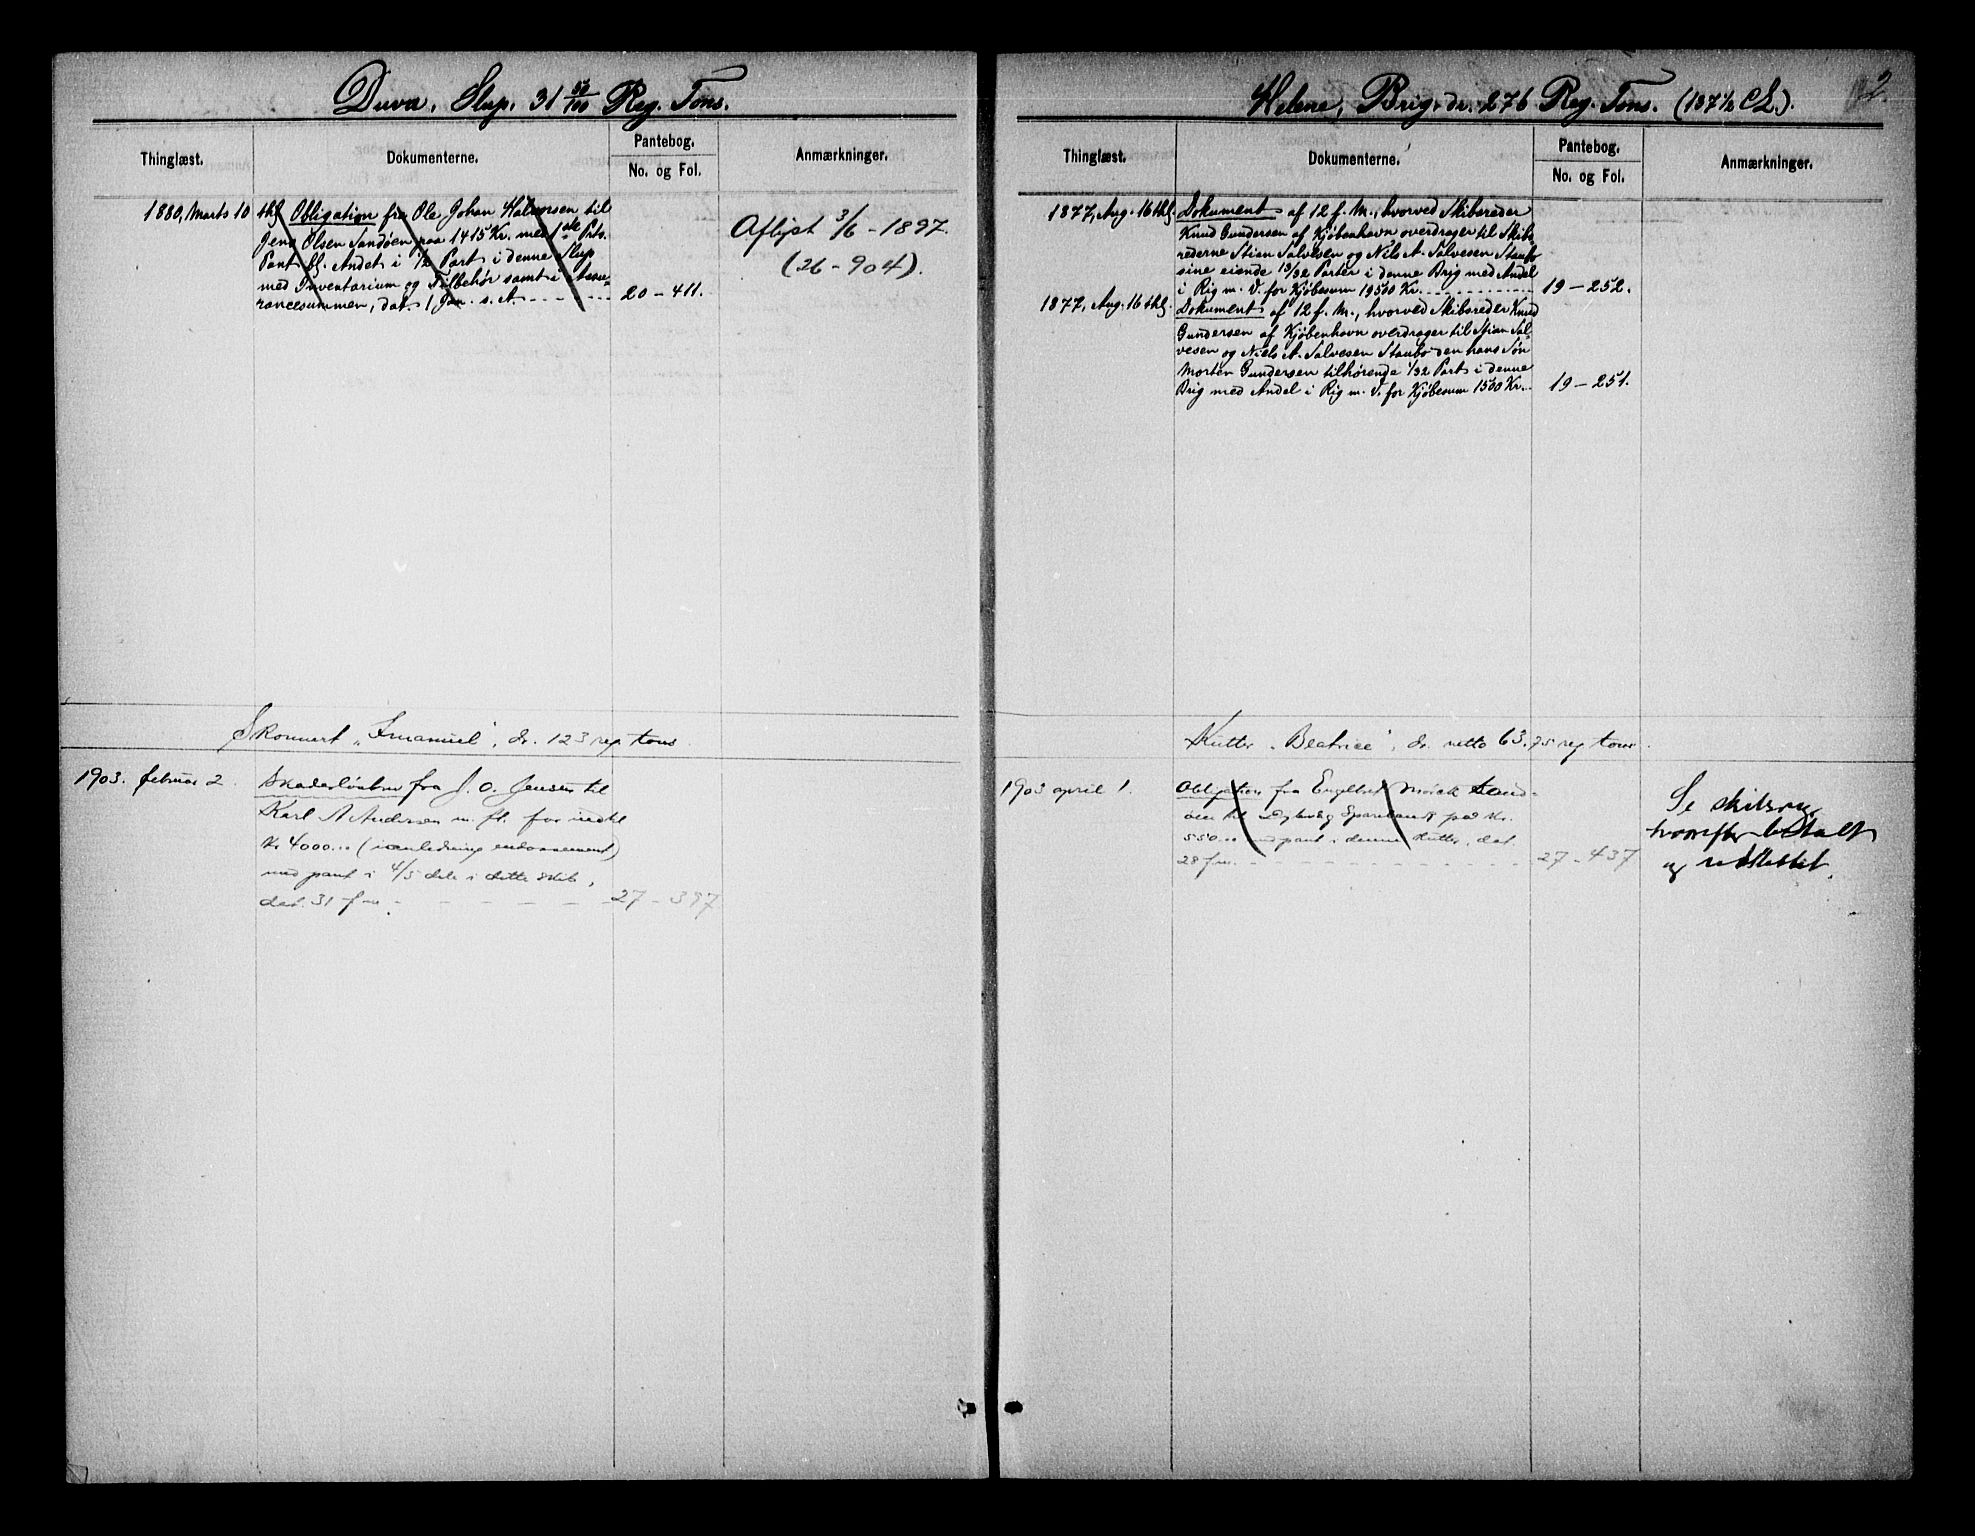 Duva, Slup. 31 50/100 Reg. Tons.
Thinglæst.
Dokumenterne.
Pantebog.
No. og Fol.
Anmærkninger.
1880, Marts 10 thl. Obligation fra Ole Johan Halvorsen til
Jens Olsen Sandøen paa 1415 Kr. med 1ste Prts.
Pant bl. Andet i 1/2 Part i denne Slup
med Inventarium og Tilbehør samt i Assu-
rancesummen, dat. 1 Jan. s. A. 20 - 411.
Aflyst 3/6 - 1897.
(26 - 904).
Skonnert "Imanuel", dr. 123 reg tons.
1903. februar 2. Skadesløsbrev fra J. O. Jensen til
Karl A Andersen m. fl. for indtil
Kr 4000... (i anledning endossement)
med pant i 4/5 dele i dette skib,
dat. 31 f. m. 27 - 397
2.
Helene, Brig, dr. 276 Reg. Tons. (137 1/2 CL).
Thinglæst.
Dokumenterne.
Pantebog.
No. og Fol.
Anmærkninger.
1877, Aug. 16 thl. Dokument af 12 f. M., hvorved Skibsreder
Knud Gundersen af Kjøbenhavn overdrager til Skibs-
rederne Stian Salvesen og Nils A. Salvesen Staubo
sine eiende 13/32 Parter i denne Brig med Andel
i Rig m. V. for Kjøbesum 19500 Kr. 19 - 252.
1877, Aug. 16 thl. Dokument af 12 f. M., hvorved Skibsreder Knud
Gundersen af Kjøbenhavn overdrager til Stian Sal-
vesen og Niels A. Salvesen Staubo den hans Søn
Morten Gundersen tilhørende 1/32 Part i denne
Brig med Andel i Rig m. V. for Kjøbesum 1500 Kr. 19 - 251.
Kutter "Beatrice", dr. netto 63,75 reg tons.
1903 april 1. Obligation fra Engelbret Mørch Sand-
øen til Dybvåg Sparebank på Kr.
550... med pant i denne Kutter, dat.
28 f. m. 27 - 437
Se
hvorefter betalt
og udslettet.